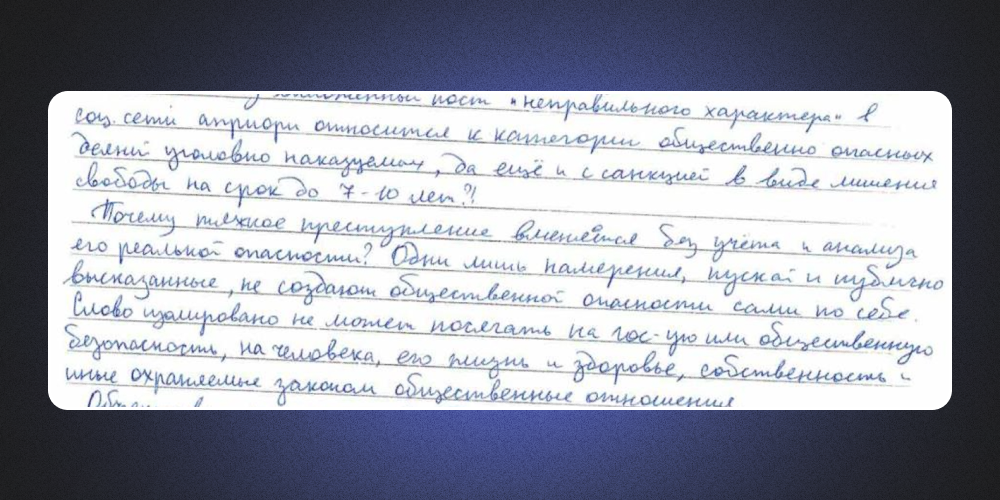 пост "неправильного характера" в
соц. сети априори относится к категории общественно опасных
деяний уголовно наказуемых, да ещё и с санкцией в виде лишения
свободы на срок до 7-10 лет?!
Почему тяжкое преступление вменяется без учёта и анализа
его реальной опасности? Одни лишь намерения, пускай и публично
высказанные, не создают общественной опасности сами по себе.
Слово изолировано не может посягать на гос-ую или общественную
безопасность, на человека, его жизнь и здоровье, собственность и
иные охраняемые законом общественные отношения